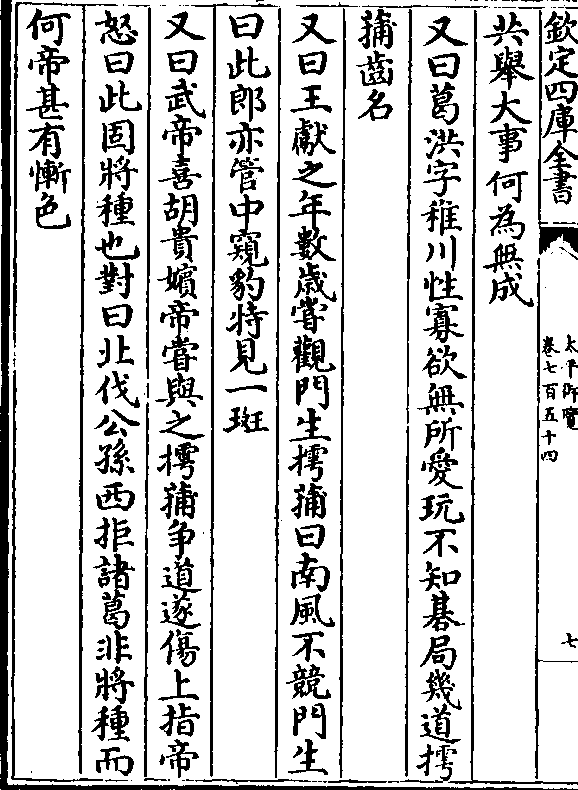 欽定四庫全書
太平御覽
卷七百五十四
七
共舉大事何為無成
又曰葛洪字稚川性寡欲無所愛玩不知碁局幾道摴
蒱齒名
又曰王獻之年數歲嘗觀門生摴蒱曰南風不競門生
曰此郎亦管中窺豹特見一斑
又曰武帝喜胡貴嬪帝嘗與之摴蒱争道遂傷上指帝
怒曰此固將種也對曰北伐公孫西拒諸葛非將種而
何帝甚有慚色